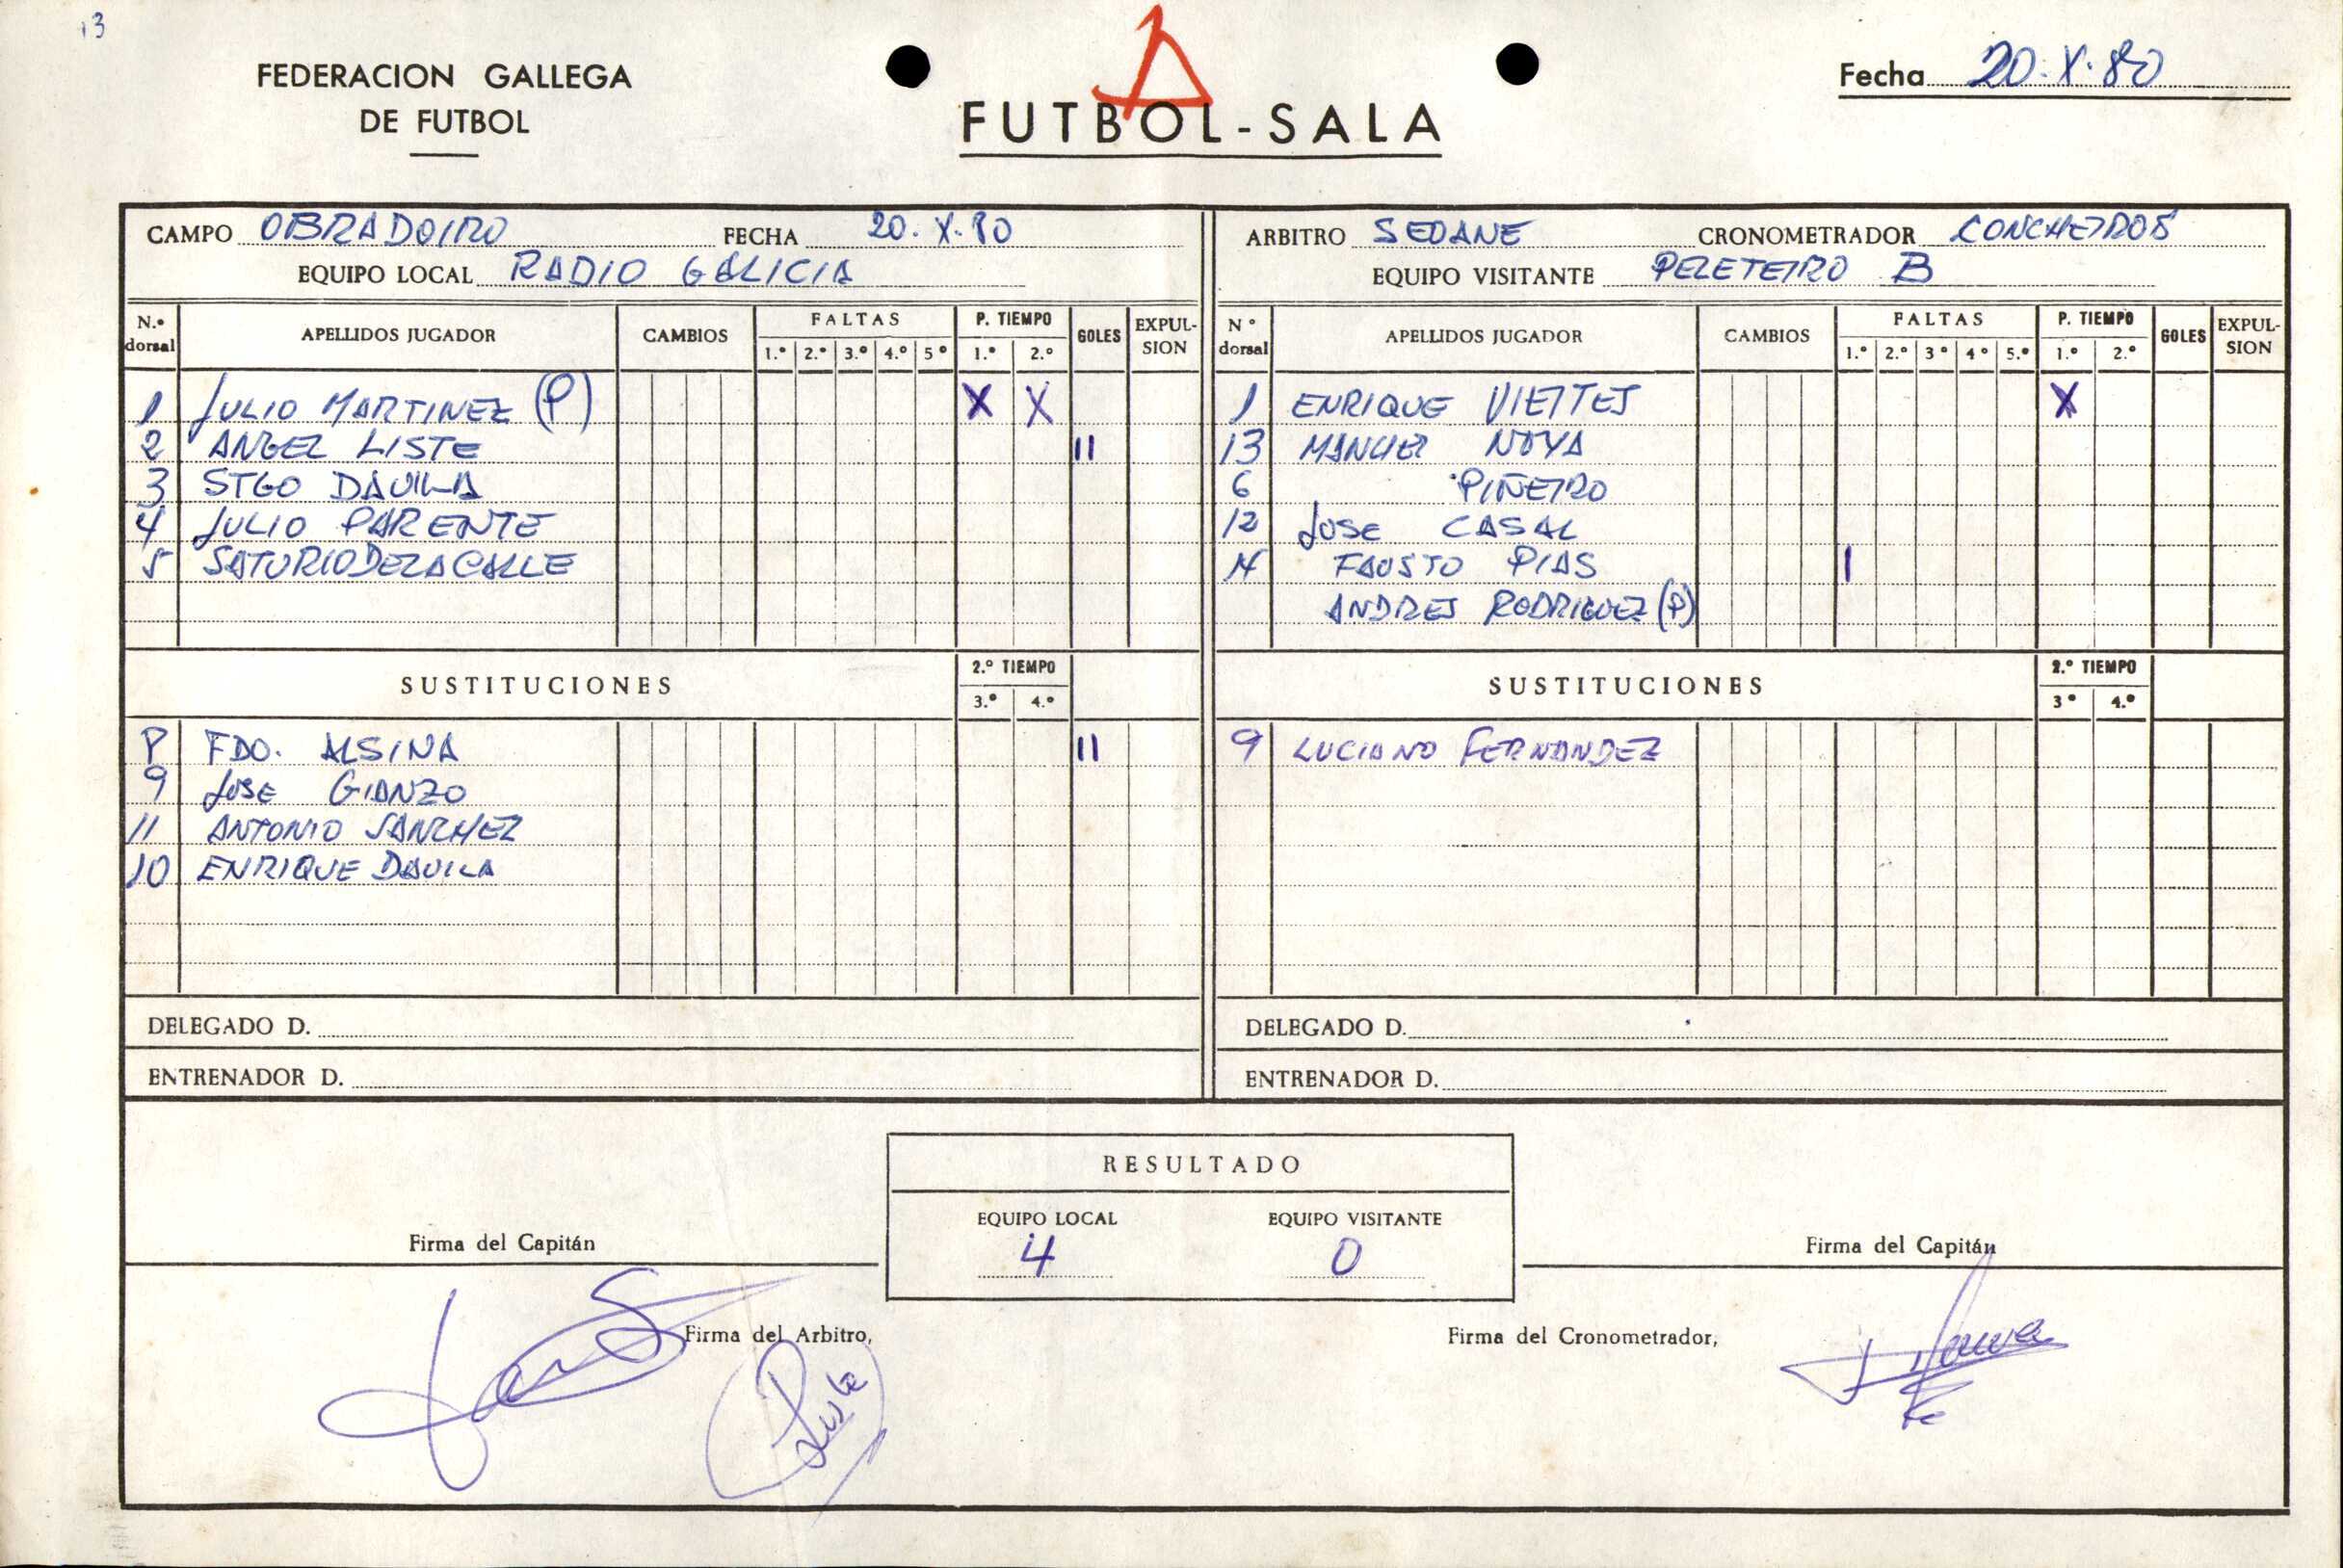 13
FEDERACION GALLEGA
DE FUTBOL
FUTBOL-SALA
Fecha 20.X.80
CAMPO OBRADOIRO FECHA 20.X.80
EQUIPO LOCAL RADIO GALICIA
N.º dorsal APELLIDOS JUGADOR CAMBIOS FALTAS P. TIEMPO GOLES EXPUL-SION
1.º 2.º 3.º 4.º 5º 1.º 2.º
1 JULIO MARTINEZ (P) X X
2 ANGEL LISTE II
3 STGO DAVILA
4 JULIO PARENTE
5 SATURIO DE LA CALLE
SUSTITUCIONES 2.º TIEMPO
3.º 4.º
8 FDO. ALSINA II
9 JOSE GIANZO
11 ANTONIO SANCHEZ
10 ENRIQUE DAVILA
DELEGADO D.
ENTRENADOR D.
ARBITRO SEOANE CRONOMETRADOR CONCHEIROS
EQUIPO VISITANTE PELETEIRO B
Nº dorsal APELLIDOS JUGADOR CAMBIOS FALTAS P. TIEMPO GOLES EXPUL-SION
1.º 2.º 3º 4º 5.º 1.º 2.º
1 ENRIQUE VIEITES X
13 MANUEL NOYA
6 PIÑEIRO
12 JOSE CASAL
FAUSTO PIAS I
ANDRES RODRIGUEZ (P)
SUSTITUCIONES 2.º TIEMPO
3º 4.º
9 LUCIANO FERNANDEZ
DELEGADO D.
ENTRENADOR D.
RESULTADO
EQUIPO LOCAL EQUIPO VISITANTE
4 0
Firma del Capitán
Firma del Capitán
Firma del Arbitro,
Firma del Cronometrador,